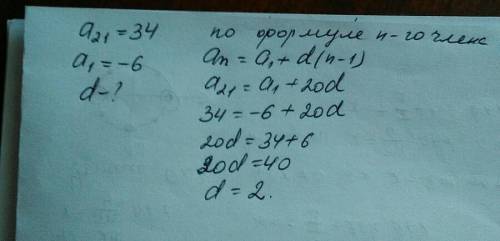 a₂₁ = 34
a₁ = -6
d - ?
по формуле n-го член
an = a₁ + d(n-1)
a₂₁ = a₁ + 20d
34 = -6 + 20d
20d = 34+6
20d = 40
d = 2.